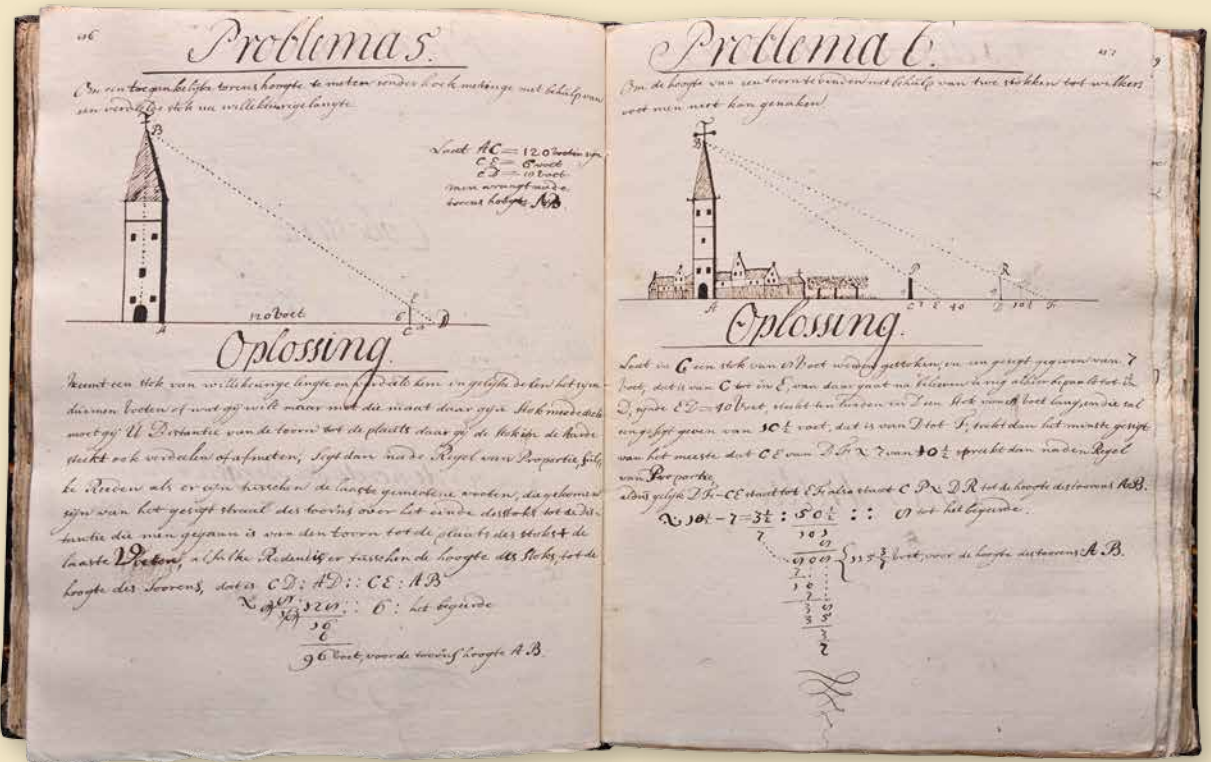 Problema 5.
Om een toegankelijke torens hoogte te meten zonder hoek metinge met behulp van
een verdeelde stok na willekeurige langte.
B
Laat AC = 120 voeten zijn
CE = 6 voet
CD = voet
men vraagt na de
torens hoogte AB.
E
120 voet 6
A C D
Oplossing.
Neemt een stok van willekeurige lengte en verdeelt hem in gelijke delen het zijn
duimen voeten of wat gij wilt maar met die maat daar gij u stok mede deelt
moet gij U Distantie van de toorn tot de plaats daar gij de stok in de aarde
steekt ook verdeelen of afmeten, segt dan na de Regel van Proportie, sulk
ke Reeden als er zijn tusschen de laatste gemetene voeten, die gekomen
zijn van het gezigt straal des toorns over het einde des stoks tot de dis
tantie die men gegaan is van den toorn tot de plaats des stoks & de
laatste Voeten, al sulke Reden is er tusschen de hoogte des stoks, tot de
hoogte des Toorens, dat is CD : AD :: CE : AB
6 : het begeerde
96 voet, voor de toorns hoogte AB.
Problema 6.
Om de hoogte van een toorn te vinden met behulp van twe stokken tot welkers
voet men niet kan genaken.
B
P R
A C 7 E 40 D 10½ F
Oplossing.
Laat in C een stok van voet worden gestoken, en een gezigt gegeven van 7
voet, dat is van C tot in E, van daar gaat na believen te rug alhier bepaalt tot in
D, zijnde ED = 40 voet, steekt ten tweeden in D een stok van voet lang, en die sal
een gezigt geven van 10½ voet, dat is van D tot F, trekt dan het minste gezigt
van het meeste dat CE van DF & 7 van 10½ spreekt dan na den Regel
van Proportie,
aldus gelijk DF–CE staat tot EF also staat CP & DR tot de hoogte des toorens AB.
10½ – 7 = 3½ : 50½ :: tot het begeerde.
7 101
voet, voor de hoogte des toorens AB.